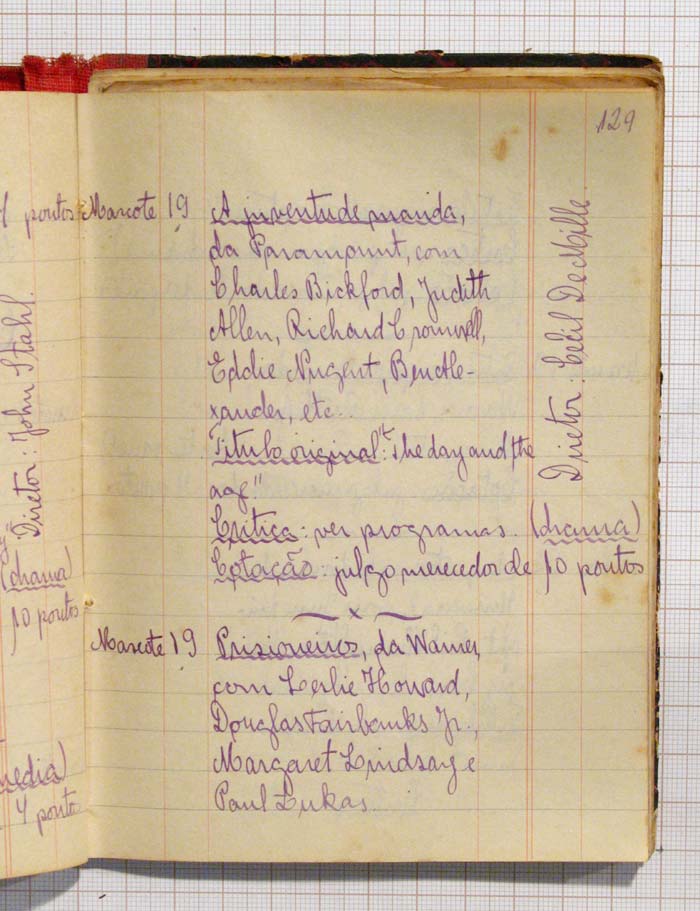 129
4 pontos
Diretor: John Stahl.
(drama)
10 pontos
media)
4 ponto
Marcote 19 A juventude manda,
da Paramount, com
Charles Bickford, Judith
Allen, Richard Cromwell,
Eddie Nugent, Ben Ale-
xander, etc
Titulo original: "The day and the
age"
Critica: ver programas. (drama)
Cotação: julgo merecedor de 10 pontos
Diretor: Cecil De Mille.
x
Marcote 19 Prisioneiros, da Warner,
com Leslie Howard,
Douglas Fairbanks Jr.,
Margaret Lindsay e
Paul Lukas